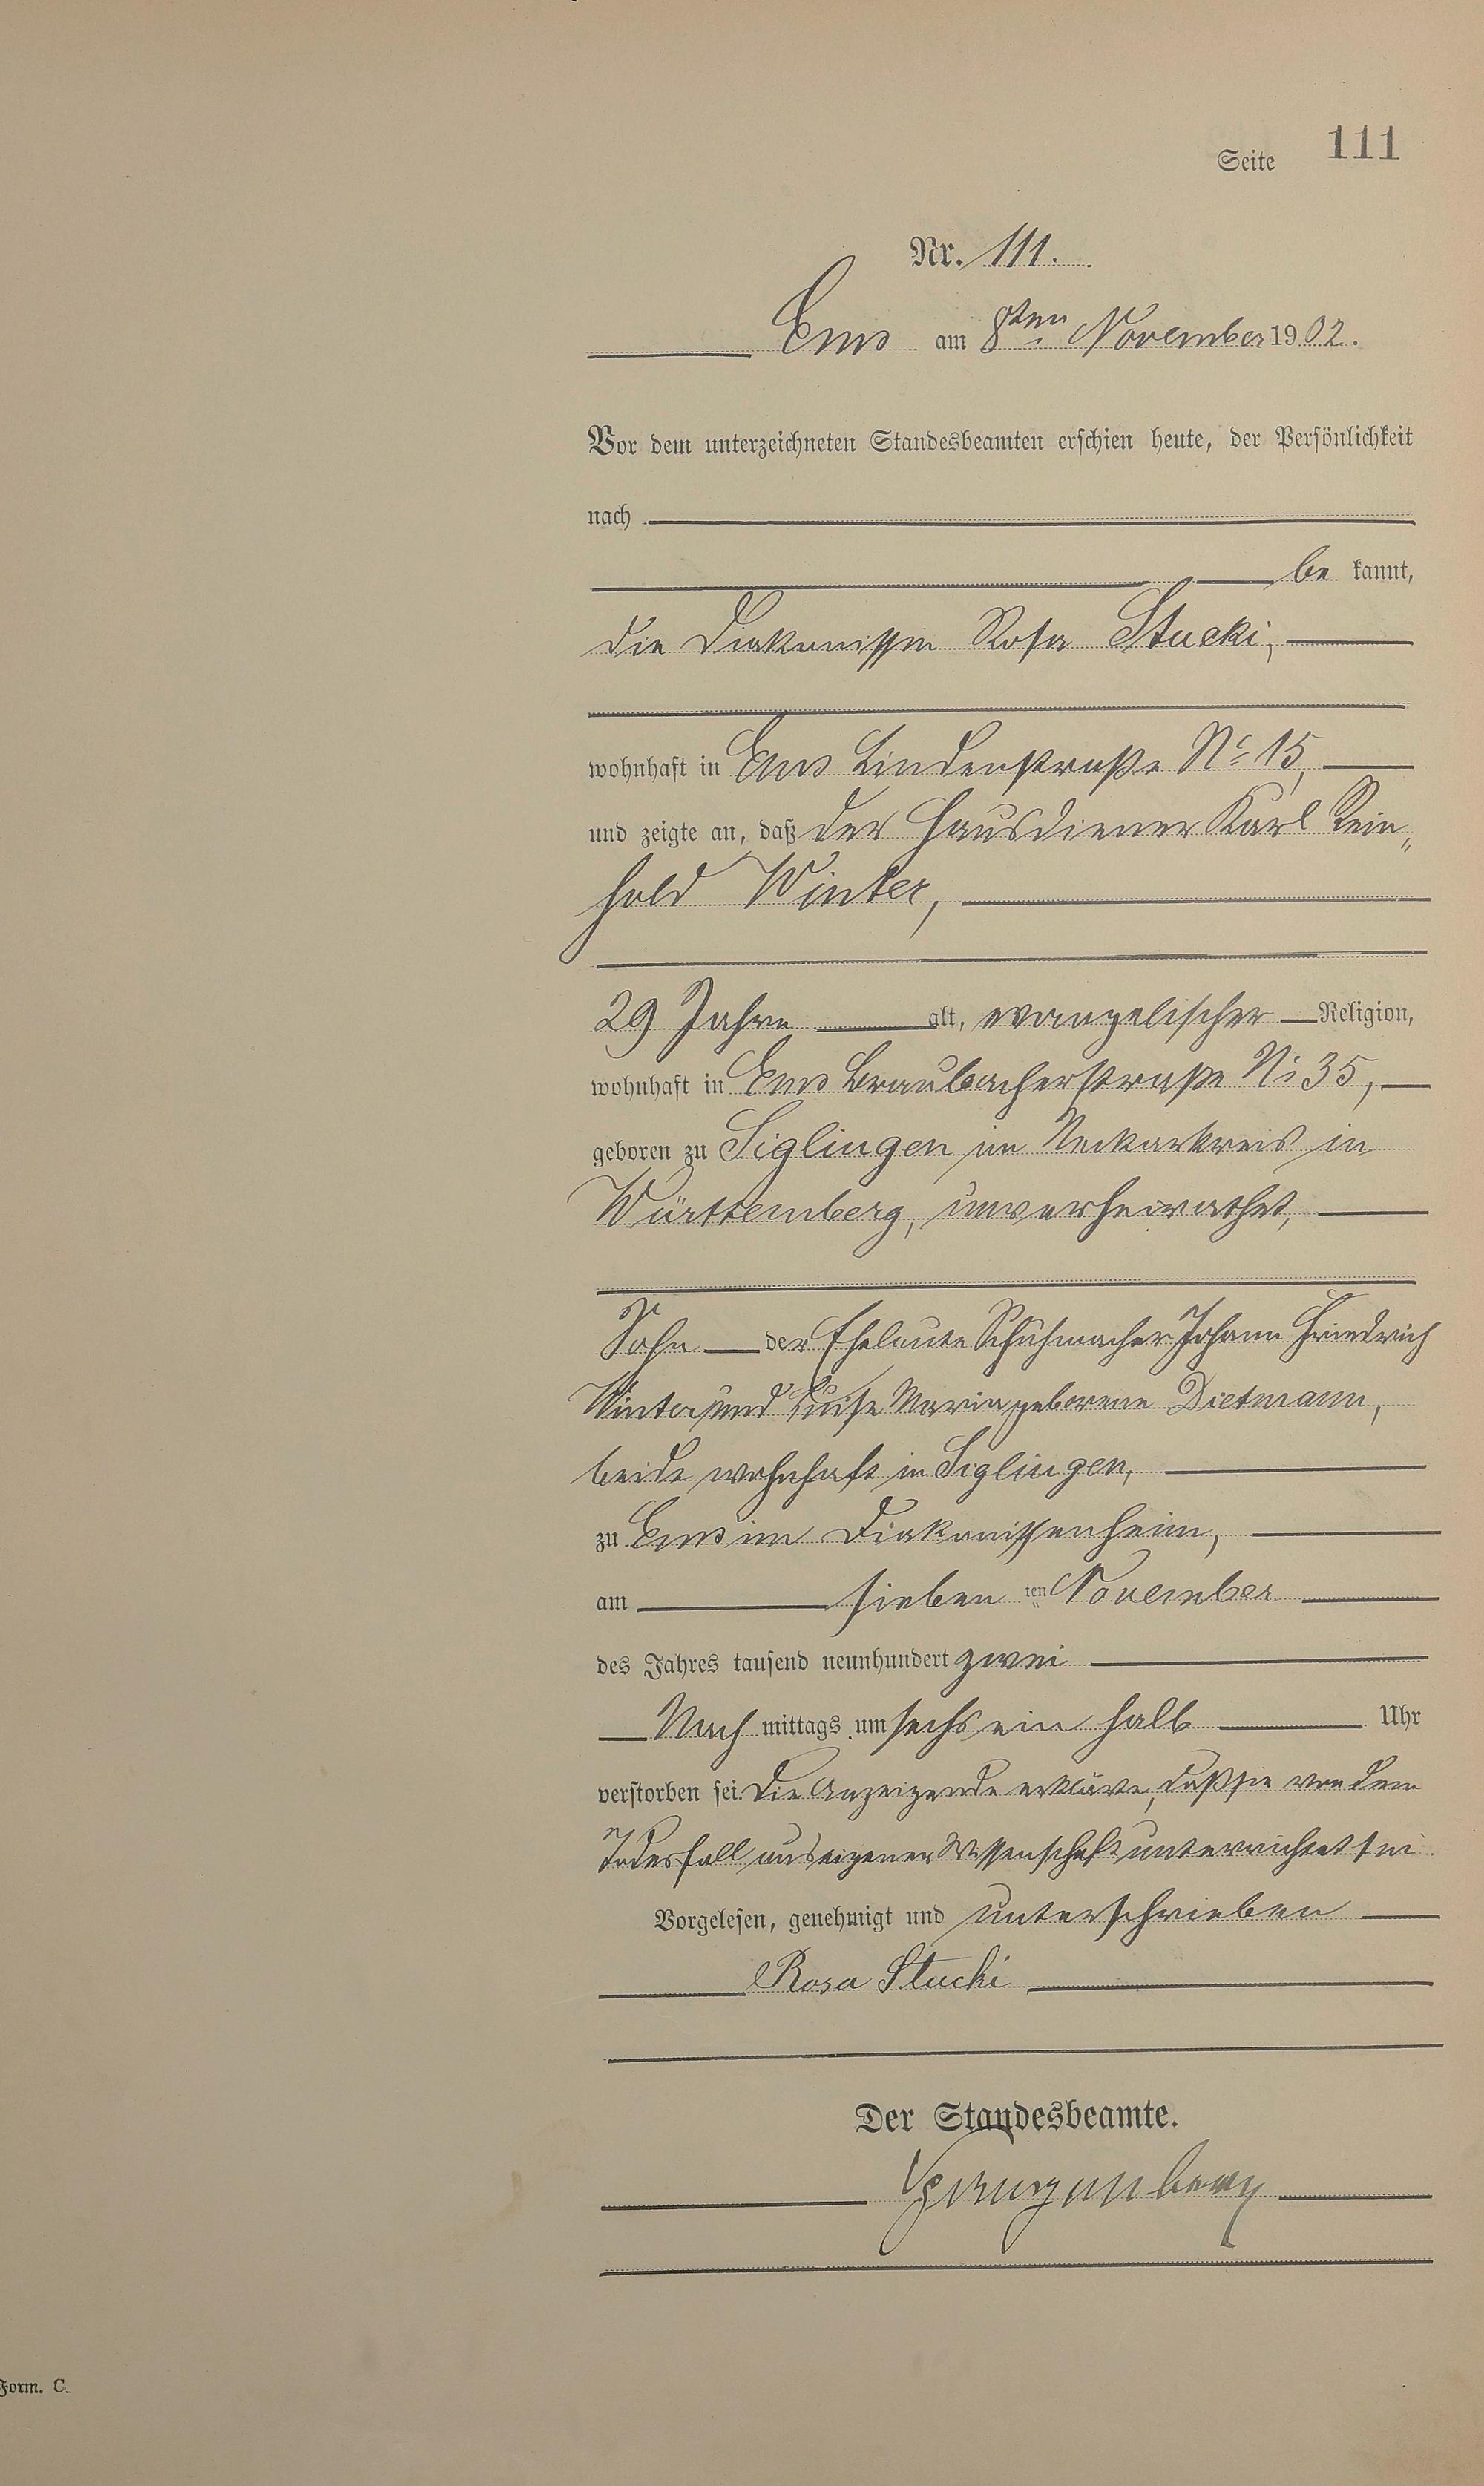 Seite 111
Nr. 111.
Ems am 8ten November 1902.
Vor dem unterzeichneten Standesbeamten erschien heute, der Persönlichkeit
nach
be kannt,
die Diakonissin Rosa Stucki,
wohnhaft in Ems Lindenstraße No 15,
und zeigte an, daß der Hausdiener Karl Rein„
hold Winter,
29 Jahre alt, evangelischer Religion,
wohnhaft in Ems Braubacherstraße No 35,
geboren zu Siglingen im Neckarkreis in
Württemberg, unverheirathet,
Sohn der Eheleute Schuhmacher Johann Friedrich
Winter und Luise Maria geborene Dietmann,
beide wohnhaft in Siglingen,
zu Ems im Diakonissenheim,
am sieben ten November
des Jahres tausend neunhundert zwei
Nach mittags um sechs ein halb Uhr
verstorben sei. Die Anzeigende erkläre, daß sie von dem
Todesfall aus eigener Wissenschaft unterrichtet sei.
Vorgelesen, genehmigt und unterschrieben
Rosa Stucki
Der Standesbeamte.
Form. C.